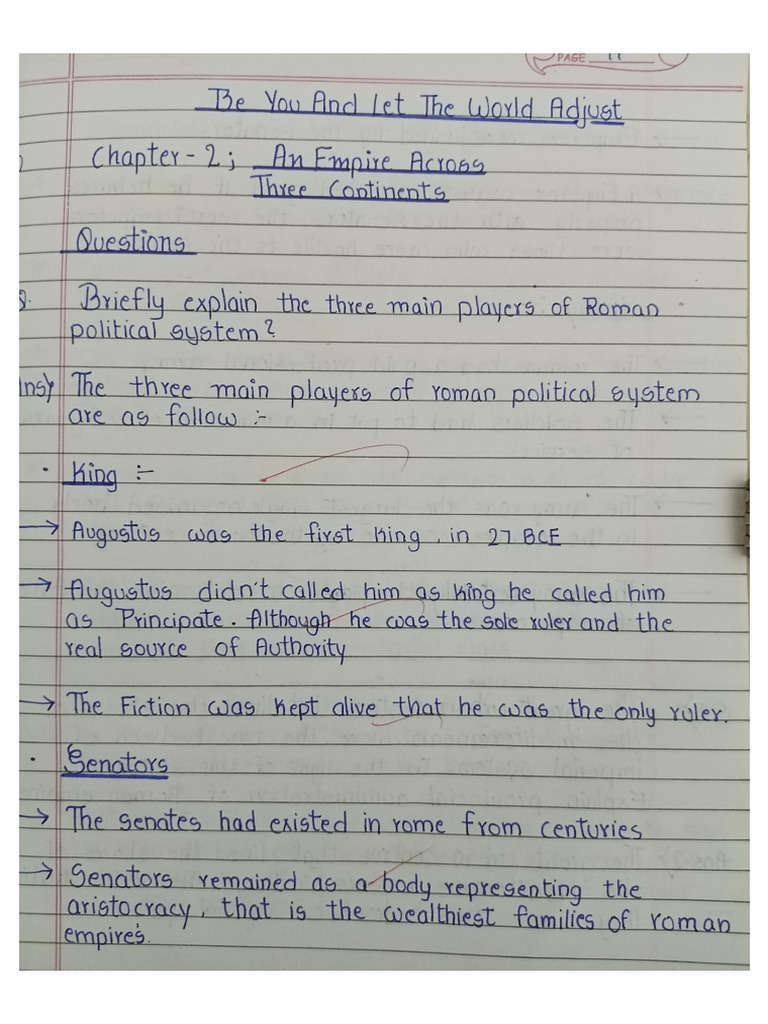 PAGE 11
Be You And Let The World Adjust
Chapter - 2 ; An Empire Across
Three Continents
Questions
Briefly explain the three main players of Roman
political system?
Ans) The three main players of roman political system
are as follow :-
• King :-
→ Augustus was the first king, in 27 BCE
→ Augustus didn't called him as king he called him
as Principate. Although he was the sole ruler and the
real source of Authority
→ The Fiction was kept alive that he was the only ruler.
• Senators
→ The Senates had existed in rome from centuries
→ Senators remained as a body representing the
aristocracy, that is the wealthiest families of roman
empire's.